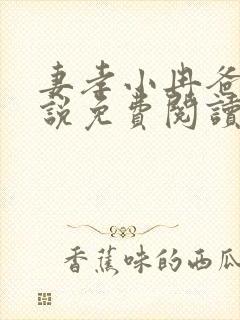 妻孝小冉爸
說免費閱讀
香蕉味的西瓜